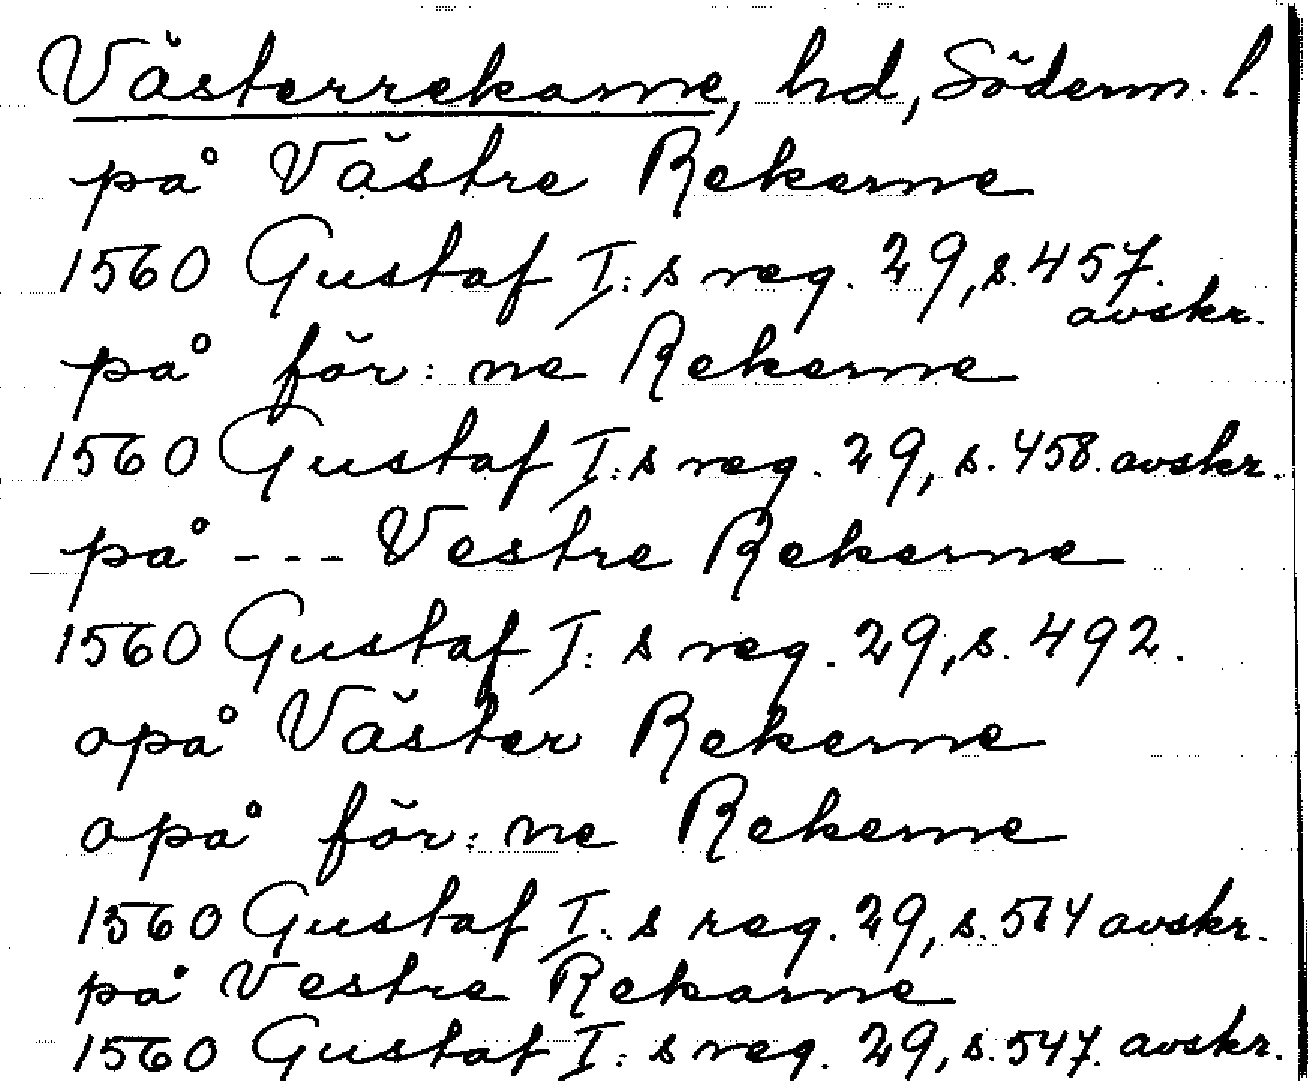 Västerrekarne, hd, Söderm. l.
på Västre Rekerne
1560 Gustaf I:s reg. 29, s. 457.
avskr.
på för:ne Rekerne
1560 Gustaf I:s reg. 29, s. 458. avskr.
på --- Vestre Rekerne
1560 Gustaf I:s reg. 29, s. 492.
opå Väster Rekerne
opå för:ne Rekerne
1560 Gustaf I:s reg. 29, s. 514 avskr.
på Vestre Rekarne
1560 Gustaf I:s reg. 29, s. 547. avskr.